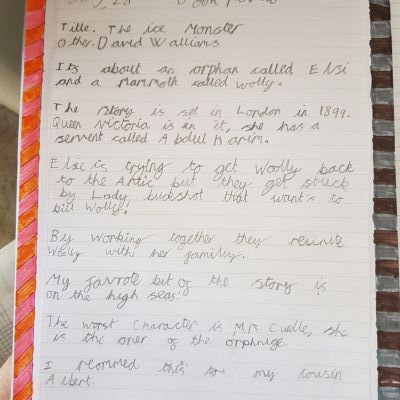 Title. The ice Monster
Other. David Walliams
Its about an orphan called Elsi
and a mammoth called wolly.
The story is set in London in 1899.
Queen Victoria is in it, she has a
servent called Abdul Karim.
Elsie is trying to get Woolly back
to the Artic but they get stuck
by Lady, buckshot that want's to
kill Wolly.
By working together they reunite
Woolly with her family.
My favrote bit of the story is
on the high seas!
The worst Character is Mrs Cudle, she
is the oner of the orphnige.
I recommed this to my cousin
Albert.